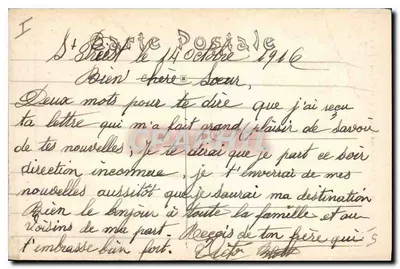 I
Carte Postale
St Priest le 14 octobre 1916
Bien chère sœur,
Deux mots pour te dire que j'ai reçu
ta lettre qui m'a fait grand plaisir de savoir
de tes nouvelles, je te dirai que je part ce soir
direction inconnue, je t'enverai de mes
nouvelles aussitôt que je saurai ma destination
Rien le bonjour à toute la famille et au
voisins de ma part. Reçois de ton frère qui
t'embrasse bien fort.